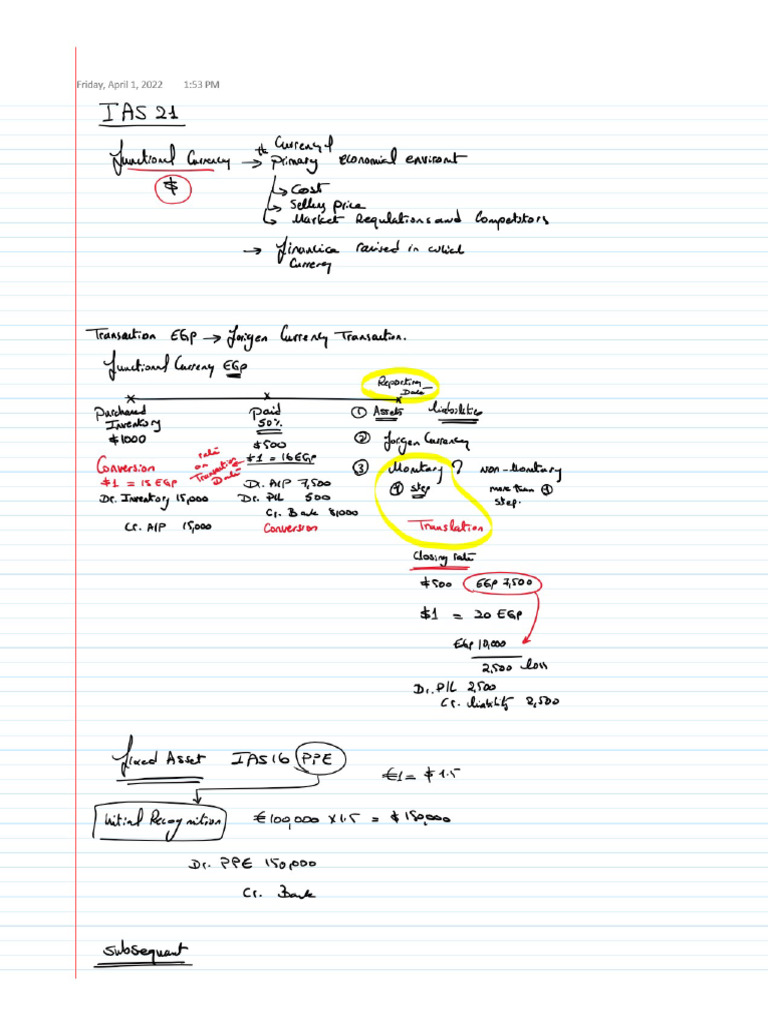 Friday, April 1, 2022 1:53 PM
IAS 21
Functional Currency → the Currency of
primary economical enviromt
$
↳ Cost
↳ Selling price
↳ Market Regulations and Competitors
→ finance raised in which
Currency
Transaction EGP → Forigen Currency Transaction.
Functional Currency EGP
Reporting
Date
Purchased
Inventory
$1000
Paid
50%
$500
$1 = 16 EGP
① Assets Liabilities
② Forgen Currency
③ Monetary ? non-Monetary
① step
more than ①
step.
Conversion
$1 = 15 EGP
rate
on
Transaction
Date
Dr. Inventory 15,000
Cr. A/P 15,000
Dr. A/P 7,500
Dr. P/L 500
Cr. Bank 8,000
Conversion
Translation
Closing rate
$500 EGP 7,500
$1 = 20 EGP
EGP 10,000
2,500 loss
Dr. P/L 2,500
Cr. liability 2,500
fixed Asset IAS 16 PPE
€1 = $1.5
Initial Recognition €100,000 x 1.5 = $150,000
Dr. PPE 150,000
Cr. Bank
subsequent